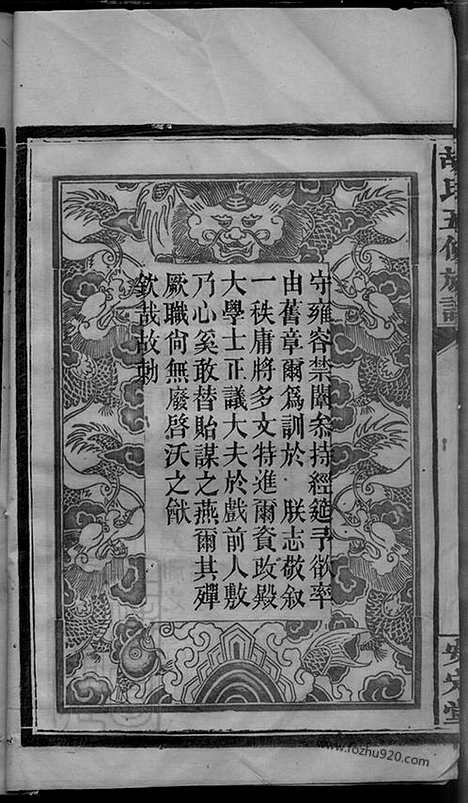 胡氏五修族譜
守雍容禁闥叅持經筵予欲率
由舊章爾爲訓於 朕志敬叙
一秩庸將多文特進爾資政殿
大學士正議大夫於戲前人敷
乃心奚敢替貽謀之燕爾其殫
厥職尙無廢啓沃之猷
欽哉故勅
安定堂
www.fozhu920.com